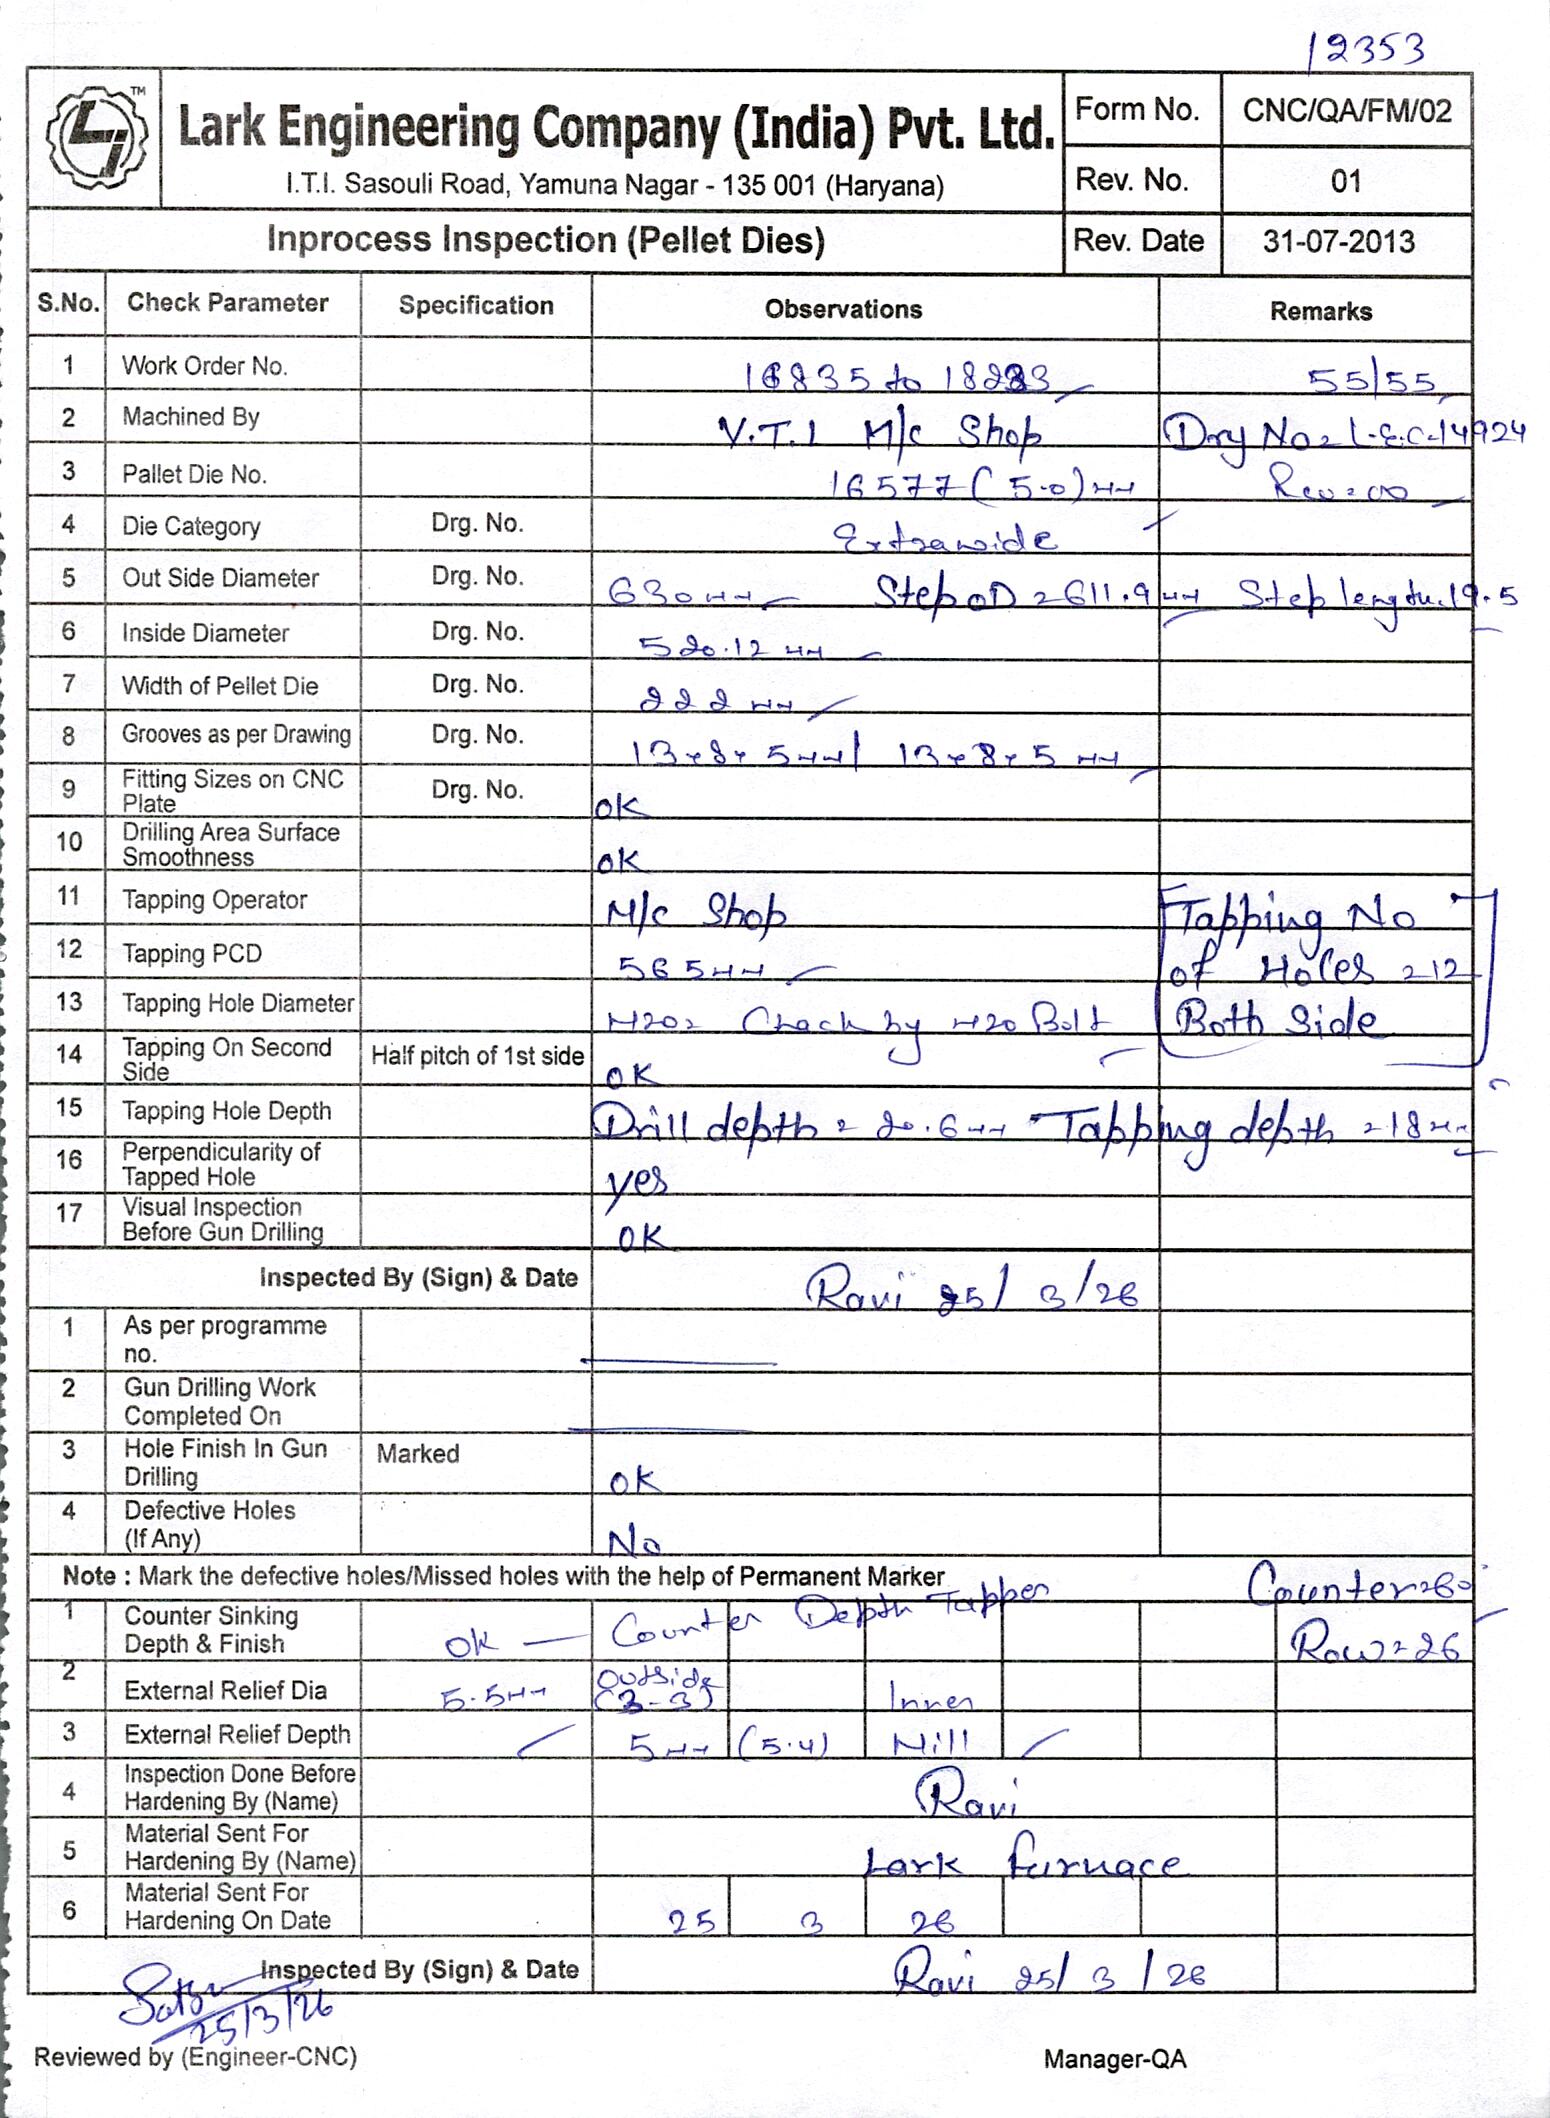 12353
TM
Lark Engineering Company (India) Pvt. Ltd.
I.T.I. Sasouli Road, Yamuna Nagar - 135 001 (Haryana)
Form No. CNC/QA/FM/02
Rev. No. 01
Inprocess Inspection (Pellet Dies) Rev. Date 31-07-2013
S.No. Check Parameter Specification Observations Remarks
1 Work Order No. to 55/55
2 Machined By V.T.I M/c Shop Drg No = L.E.C-14924
3 Pallet Die No. 16577 (5.0) mm Rev = 00
4 Die Category Drg. No. Extrawide
5 Out Side Diameter Drg. No. 630 mm Step OD = 611.9 mm Step length 19.5
6 Inside Diameter Drg. No. 520.12 mm
7 Width of Pellet Die Drg. No. 222 mm
8 Grooves as per Drawing Drg. No. 13x8x5mm / 13x8x5 mm
9 Fitting Sizes on CNC Plate Drg. No. OK
10 Drilling Area Surface Smoothness OK
11 Tapping Operator M/c Shop Tapping No
12 Tapping PCD 565mm of Holes = 12
13 Tapping Hole Diameter M20 = Check by M20 Bolt Both Side
14 Tapping On Second Side Half pitch of 1st side OK
15 Tapping Hole Depth Drill depth = 20.6mm Tapping depth = 18mm
16 Perpendicularity of Tapped Hole yes
17 Visual Inspection Before Gun Drilling OK
Inspected By (Sign) & Date Ravi 25/3/26
1 As per programme no.
2 Gun Drilling Work Completed On
3 Hole Finish In Gun Drilling Marked OK
4 Defective Holes (If Any) No
Note : Mark the defective holes/Missed holes with the help of Permanent Marker Counter = 60°
1 Counter Sinking Depth & Finish OK — Counter Depth Tapper Row = 26
2 External Relief Dia 5.5mm Outside (3-3) Inner
3 External Relief Depth 5mm (5.4) Nill
4 Inspection Done Before Hardening By (Name) Ravi
5 Material Sent For Hardening By (Name) Lark Furnace
6 Material Sent For Hardening On Date 25 3 26
Inspected By (Sign) & Date Ravi 25/3/26
25/3/26
Reviewed by (Engineer-CNC) Manager-QA